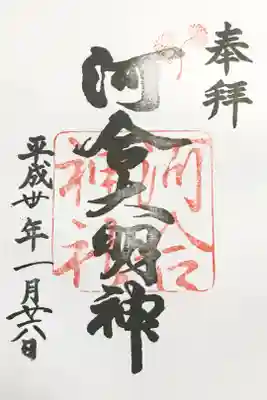 奉拝
河合大明神
河合神社
平成廿年一月廿八日